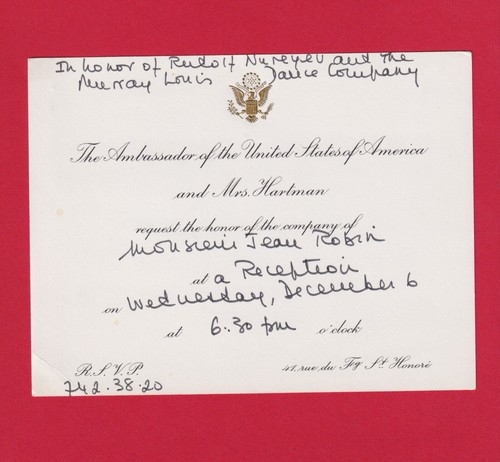 In honor of Rudolf Nureyev and the
Murray Louis Dance Company
The Ambassador of the United States of America
and Mrs. Hartman
request the honor of the company of
Monsieur Jean Robin
at a Reception
on Wednesday, December 6
at 6:30 pm o'clock
R.S.V.P. 41, rue du Fg St Honoré
742.38.20